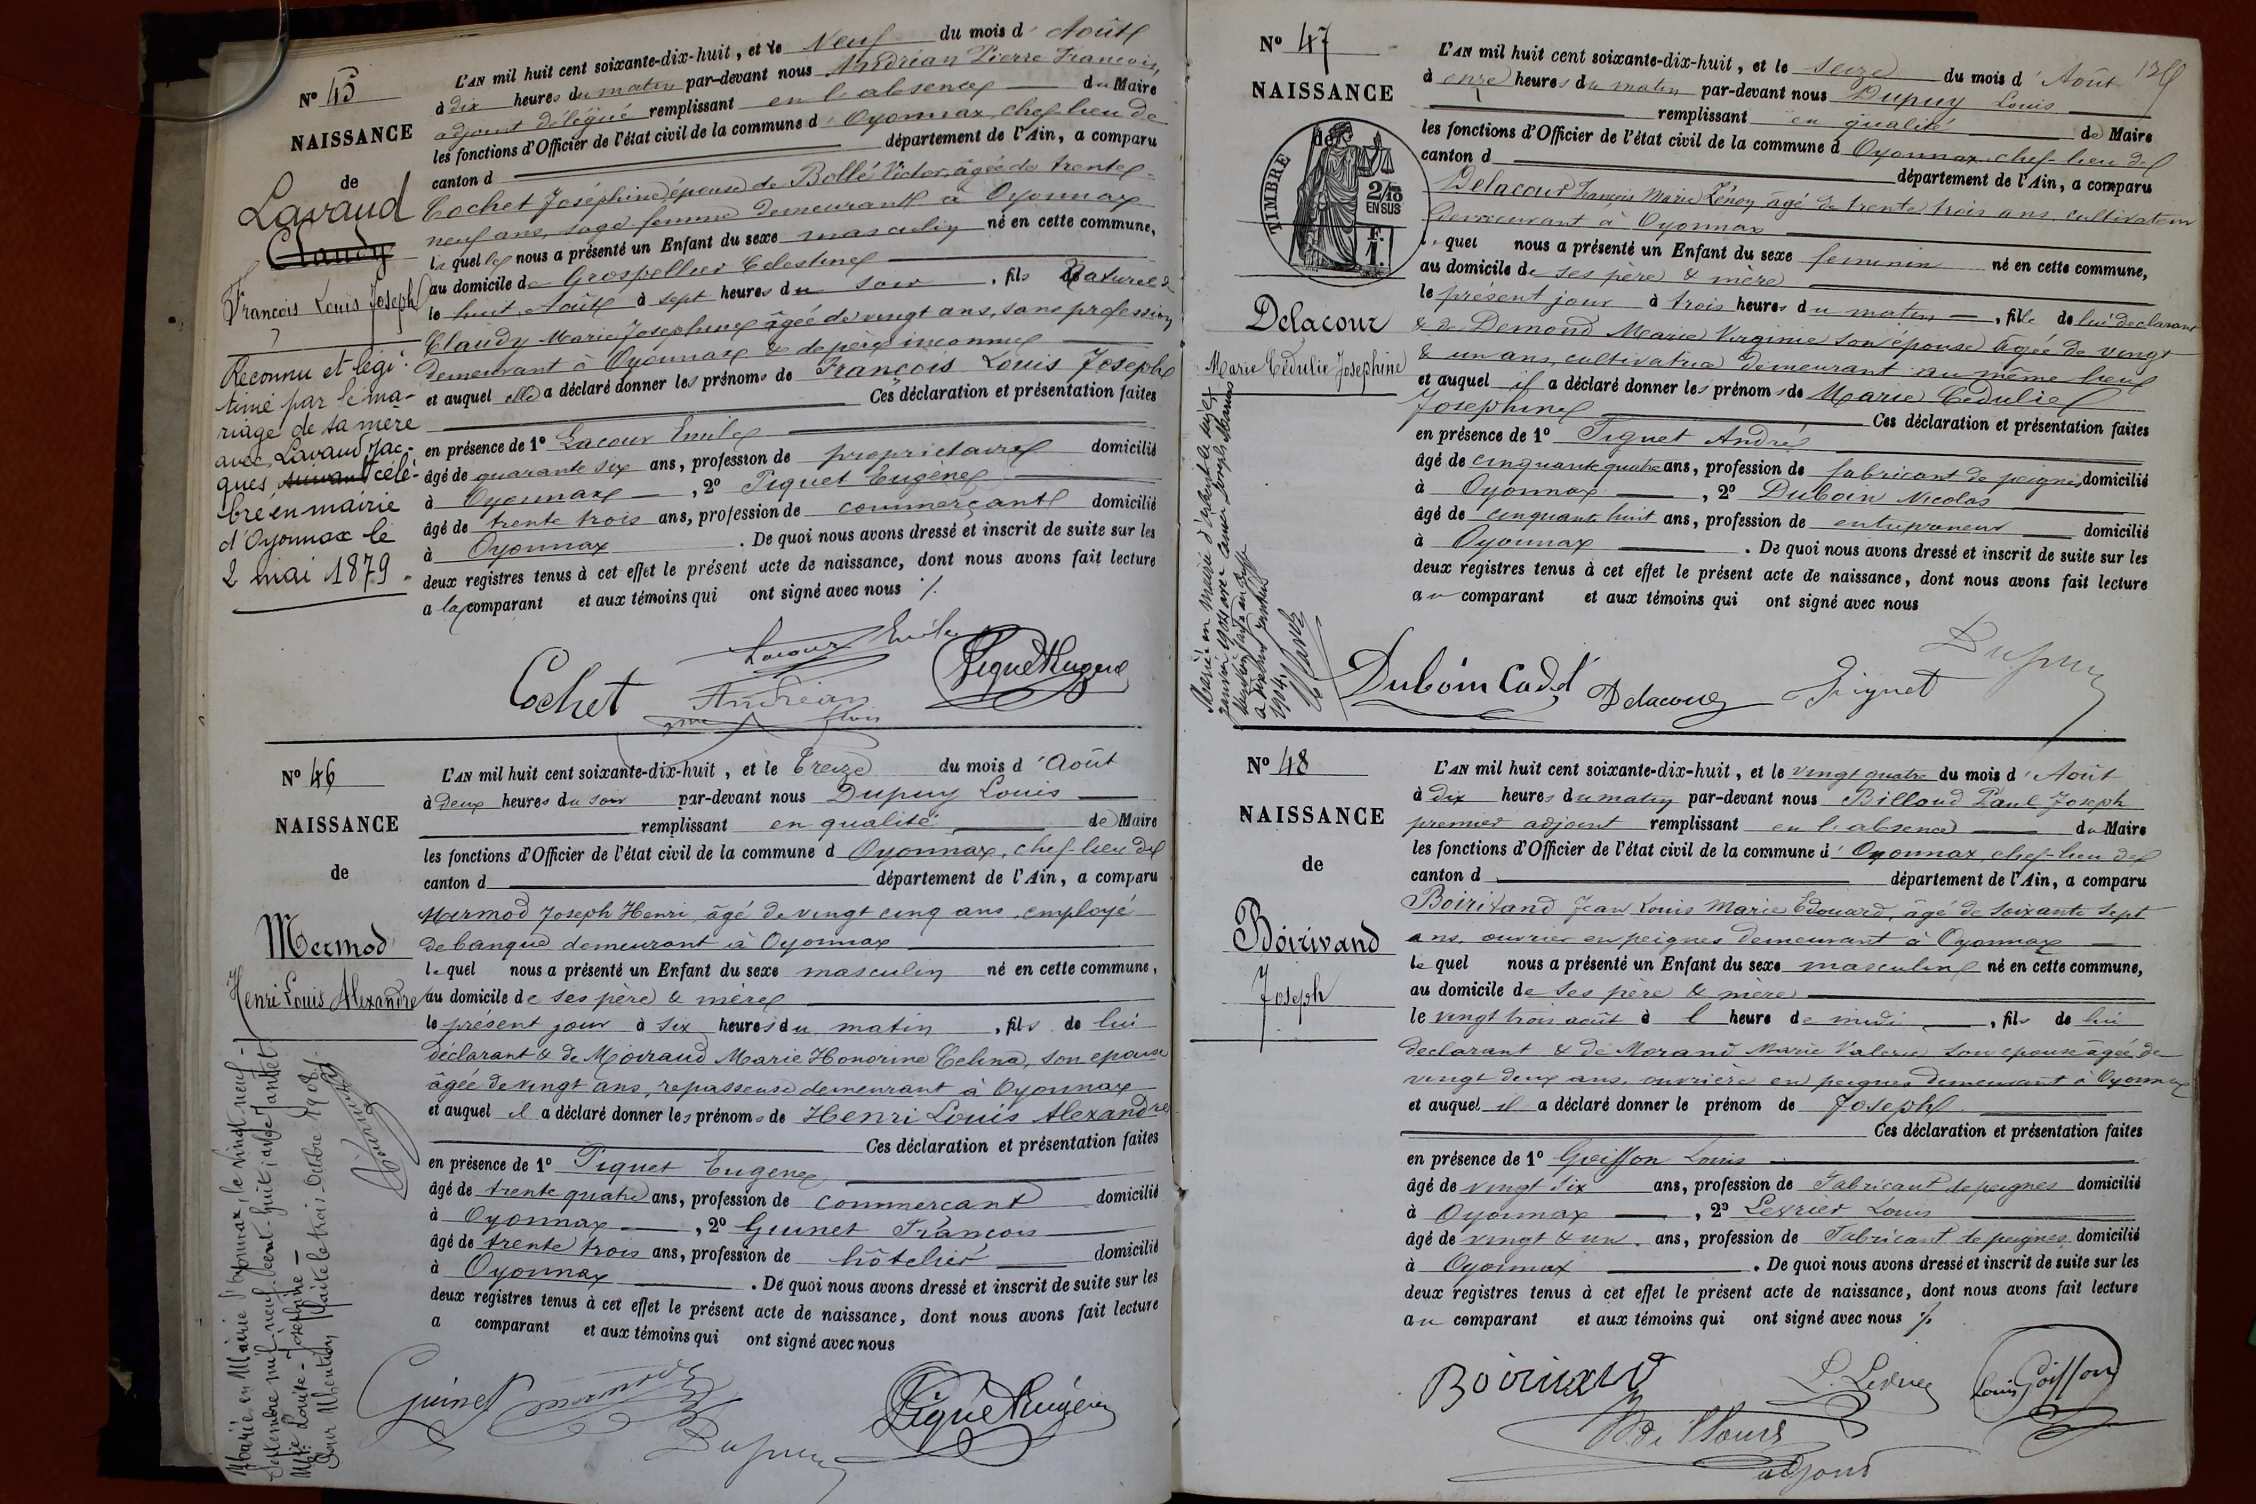 Nº 45
NAISSANCE
de
Lavaud
Claudy
François Louis Joseph
Reconnu et légi-
timé par le ma-
riage de sa mère
avec Lavaud Jac-
ques suivant célé-
bré en mairie
d'Oyonnax le
2 mai 1879
L'AN mil huit cent soixante-dix-huit, et le Neuf du mois d' Août
à dix heures du matin par-devant nous Andréan Pierre François,
adjoint délégué remplissant en l'absence du Maire
les fonctions d'Officier de l'état civil de la commune d' Oyonnax, chef-lieu de
canton d département de l'Ain, a comparu
Cochet Joséphine épouse de Bollé Victor, âgée de trente
neuf ans, sage femme demeurant à Oyonnax
laquelle nous a présenté un Enfant du sexe masculin né en cette commune,
au domicile de Grospellier Célestine
le huit Août à sept heures du soir, fils naturel de
Claudy Marie Josephine âgée de vingt ans, sans profession
demeurant à Oyonnax & de père inconnu
et auquel elle a déclaré donner les prénoms de François Louis Joseph
Ces déclaration et présentation faites
en présence de 1º Lacour Emile
âgé de quarante six ans, profession de propriétaire domicilié
à Oyonnax, 2º Piquet Eugène
âgé de trente trois ans, profession de commerçant domicilié
à Oyonnax. De quoi nous avons dressé et inscrit de suite sur les
deux registres tenus à cet effet le présent acte de naissance, dont nous avons fait lecture
a la comparant et aux témoins qui ont signé avec nous
Lacour Emile
Cochet Andréan Piquet Eugène
Nº 46
NAISSANCE
de
Mermod
Henri Louis Alexandre
Marié en Mairie d'Oyonnax, le vingt neuf
Septembre mil neuf cent huit
Marie Louise Joséphine
Pour Mention faite le trois Octobre 1908.
L'AN mil huit cent soixante-dix-huit, et le treize du mois d' Août
à deux heures du soir par-devant nous Dupuy Louis
remplissant en qualité de Maire
les fonctions d'Officier de l'état civil de la commune d Oyonnax, chef-lieu de
canton d département de l'Ain, a comparu
Mermod Joseph Henri, âgé de vingt cinq ans, employé
de banque demeurant à Oyonnax
lequel nous a présenté un Enfant du sexe masculin né en cette commune,
au domicile de ses père & mère
le présent jour à six heures du matin, fils de lui
déclarant & de Moiraud Marie Honorine Celina, son épouse
âgée de vingt ans, repasseuse demeurant à Oyonnax
et auquel il a déclaré donner les prénoms de Henri Louis Alexandre
Ces déclaration et présentation faites
en présence de 1º Piquet Eugène
âgé de trente quatre ans, profession de commerçant domicilié
à Oyonnax, 2º Guinet François
âgé de trente trois ans, profession de hôtelier domicilié
à Oyonnax. De quoi nous avons dressé et inscrit de suite sur les
deux registres tenus à cet effet le présent acte de naissance, dont nous avons fait lecture
a comparant et aux témoins qui ont signé avec nous
Guinet Mermod Dupuy Piquet Eugène
Nº 47
NAISSANCE
de
TIMBRE
2/10
EN SUS
F.
1.
Delacour
Marie Cédulie Joséphine
L'AN mil huit cent soixante-dix-huit, et le seize du mois d' Août
à onze heures du matin par-devant nous Dupuy Louis
remplissant en qualité de Maire
les fonctions d'Officier de l'état civil de la commune d Oyonnax chef-lieu de
canton d département de l'Ain, a comparu
Delacour François Marie Zénon âgé de trente trois ans, cultivateur
demeurant à Oyonnax
lequel nous a présenté un Enfant du sexe feminin né en cette commune,
au domicile de ses père & mère
le présent jour à trois heures du matin, fille de lui déclarant
& de Demond Marie Virginie son épouse âgée de vingt
& un ans, cultivatrice demeurant au même lieu
et auquel il a déclaré donner les prénoms de Marie Cédulie
Josephine
Ces déclaration et présentation faites
en présence de 1º Piquet André
âgé de cinquante quatre ans, profession de fabricant de peignes, domicilié
à Oyonnax, 2º Duboin Nicolas
âgé de cinquante huit ans, profession de entrepreneur domicilié
à Oyonnax. De quoi nous avons dressé et inscrit de suite sur les
deux registres tenus à cet effet le présent acte de naissance, dont nous avons fait lecture
au comparant et aux témoins qui ont signé avec nous
Duboin Cadet Delacour Piquet Dupuy
Nº 48
NAISSANCE
de
Boirivand
Joseph
L'AN mil huit cent soixante-dix-huit, et le vingt quatre du mois d' Août
à dix heures du matin par-devant nous Billoud Paul Joseph
premier adjoint remplissant en l'absence du Maire
les fonctions d'Officier de l'état civil de la commune d' Oyonnax, chef-lieu de
canton d département de l'Ain, a comparu
Boirivand Jean Louis Marie Edouard, âgé de soixante sept
ans, ouvrier en peignes demeurant à Oyonnax
lequel nous a présenté un Enfant du sexe masculin né en cette commune,
au domicile de ses père & mère
le vingt trois août à l heure de midi, fils de lui
déclarant & de Morand Marie Valerie son épouse âgée de
vingt deux ans, ouvrière en peignes demeurant à Oyonnax
et auquel il a déclaré donner le prénom de Joseph
Ces déclaration et présentation faites
en présence de 1º Goiffon Louis
âgé de vingt six ans, profession de Fabricant de peignes domicilié
à Oyonnax, 2º Levrier Louis
âgé de vingt & un ans, profession de Fabricant de peignes domicilié
à Oyonnax. De quoi nous avons dressé et inscrit de suite sur les
deux registres tenus à cet effet le présent acte de naissance, dont nous avons fait lecture
au comparant et aux témoins qui ont signé avec nous
Boirivand L. Levrier Louis Goiffon
adjoint